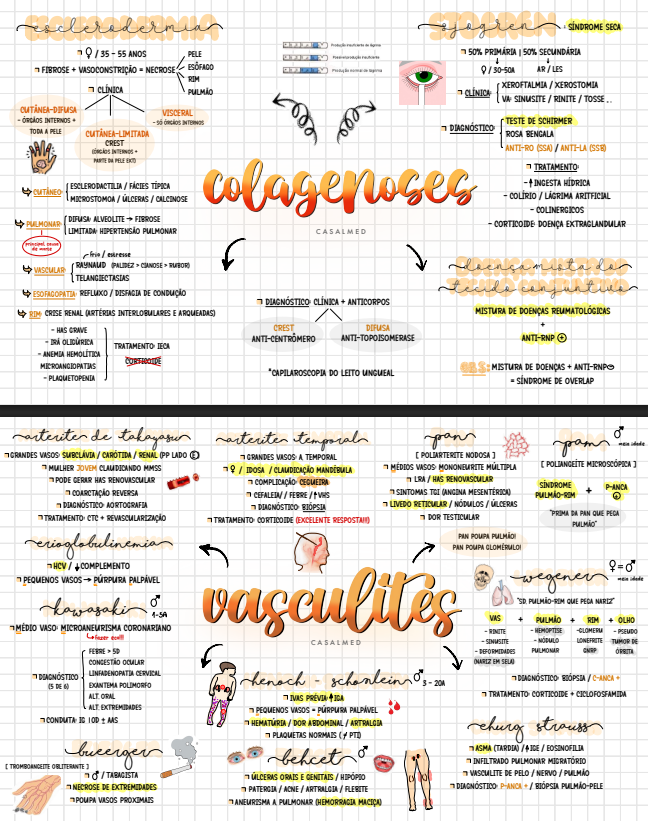 esclerodermia
♀ / 35 - 55 ANOS
FIBROSE + VASOCONSTRIÇÃO = NECROSE
PELE
ESÔFAGO
RIM
PULMÃO
CLÍNICA
CUTÂNEA-DIFUSA
- ÓRGÃOS INTERNOS +
TODA A PELE
CUTÂNEA-LIMITADA
CREST
(ÓRGÃOS INTERNOS +
PARTE DA PELE EXT)
VISCERAL
- SÓ ÓRGÃOS INTERNOS
CUTÂNEO:
ESCLERODACTILIA / FÁCIES TÍPICA
MICROSTOMIA / ÚLCERAS / CALCINOSE
PULMONAR:
DIFUSA: ALVEOLITE → FIBROSE
LIMITADA: HIPERTENSÃO PULMONAR
principal causa
de morte
VASCULAR:
frio / estresse
RAYNAUD (PALIDEZ > CIANOSE > RUBOR)
TELANGIECTASIAS
ESOFAGOPATIA: REFLUXO / DISFAGIA DE CONDUÇÃO
RIM: CRISE RENAL (ARTÉRIAS INTERLOBULARES E ARQUEADAS)
- HAS GRAVE
- IRA OLIGÚRICA
- ANEMIA HEMOLÍTICA
MICROANGIOPATIAS
- PLAQUETOPENIA
TRATAMENTO: IECA
CORTICOIDE
Produção insuficiente de lágrima
Possível produção insuficiente
Produção normal de lágrima
colagenoses
CASALMED
DIAGNÓSTICO: CLÍNICA + ANTICORPOS
CREST
ANTI-CENTRÔMERO
DIFUSA
ANTI-TOPOISOMERASE
*CAPILAROSCOPIA DO LEITO UNGUEAL
sjogren : SÍNDROME SECA
50% PRIMÁRIA | 50% SECUNDÁRIA
♀ / 30-50A
AR / LES
CLÍNICA:
XEROFTALMIA / XEROSTOMIA
VA: SINUSITE / RINITE / TOSSE...
DIAGNÓSTICO:
TESTE DE SCHIRMER
ROSA BENGALA
ANTI-RO (SSA) / ANTI-LA (SSB)
TRATAMENTO:
- ↑ INGESTA HÍDRICA
- COLÍRIO / LÁGRIMA ARITIFICIAL
- COLINERGICOS
- CORTICOIDE: DOENÇA EXTRAGLANDULAR
doença mista do
tecido conjuntivo
MISTURA DE DOENÇAS REUMATOLÓGICAS
+
ANTI-RNP +
OBS: MISTURA DE DOENÇAS + ANTI-RNP⊖
= SÍNDROME DE OVERLAP
arterite de takayasu
GRANDES VASOS: SUBCLÁVIA / CARÓTIDA / RENAL (PP LADO E)
MULHER JOVEM CLAUDICANDO MMSS
PODE GERAR HAS RENOVASCULAR
COARCTAÇÃO REVERSA
DIAGNÓSTICO: AORTOGRAFIA
TRATAMENTO: CTC + REVASCULARIZAÇÃO
arterite temporal
GRANDES VASOS: A TEMPORAL
♀ / IDOSA / CLAUDICAÇÃO MANDÍBULA
COMPLICAÇÃO: CEGUEIRA
CEFALEIA// FEBRE / ↑VHS
DIAGNÓSTICO: BIÓPSIA
TRATAMENTO: CORTICOIDE (EXCELENTE RESPOSTA!!!)
pan
[ POLIARTERITE NODOSA ]
MÉDIOS VASOS: MONONEURITE MÚLTIPLA
LRA / HAS RENOVASCULAR
SINTOMAS TGI (ANGINA MESENTÉRICA)
LIVEDO RETICULAR / NÓDULOS / ÚLCERAS
DOR TESTICULAR
PAN POUPA PULMÃO!
PAN POUPA GLOMÉRULO!
pam ♂
meia idade
[ POLIANGEÍTE MICROSCÓPICA ]
SÍNDROME
PULMÃO-RIM
+
P-ANCA
+
"PRIMA DA PAN QUE PEGA
PULMÃO"
crioglobulinemia
HCV / ↓COMPLEMENTO
PEQUENOS VASOS → PÚRPURA PALPÁVEL
kawasaki ♂
1-5A
MÉDIO VASO: MICROANEURISMA CORONARIANO
fazer eco!!!
DIAGNÓSTICO
(5 DE 6)
FEBRE > 5D
CONGESTÃO OCULAR
LINFADENOPATIA CERVICAL
EXANTEMA POLIMORFO
ALT. ORAL
ALT. EXTREMIDADES
CONDUTA: IG IOD ± AAS
buerger
[ TROMBOANGEÍTE OBLITERANTE ]
♂ / TABAGISTA
NECROSE DE EXTREMIDADES
POUPA VASOS PROXIMAIS
vasculites
CASALMED
henoch - schonlein ♂ 3 - 20A
IVAS PRÉVIA ↑IGA
PEQUENOS VASOS = PÚRPURA PALPÁVEL
HEMATÚRIA / DOR ABDOMINAL / ARTRALGIA
PLAQUETAS NORMAIS (≠ PTI)
behcet ♂
ÚLCERAS ORAIS E GENITAIS / HIPÓPIO
PATERGIA / ACNE / ARTRALGIA / FLEBITE
ANEURISMA A PULMONAR (HEMORRAGIA MACIÇA)
wegener
♀ = ♂
meia idade
"SD. PULMÃO-RIM QUE PEGA NARIZ"
VAS + PULMÃO + RIM + OLHO
- RINITE
- SINUSITE
- DEFORMIDADES
(NARIZ EM SELA)
- HEMOPTISE
- NÓDULO
PULMONAR
-GLOMERU
LONEFRITE
GNRP
- PSEUDO
TUMOR DE
ÓRBITA
DIAGNÓSTICO: BIÓPSIA / C-ANCA +
TRATAMENTO: CORTICOIDE + CICLOFOSFAMIDA
churg strauss
ASMA (TARDIA) / ↑IGE / EOSINOFILIA
INFILTRADO PULMONAR MIGRATÓRIO
VASCULITE DE PELO / NERVO / PULMÃO
DIAGNÓSTICO: P-ANCA + / BIÓPSIA PULMÃO-PELE